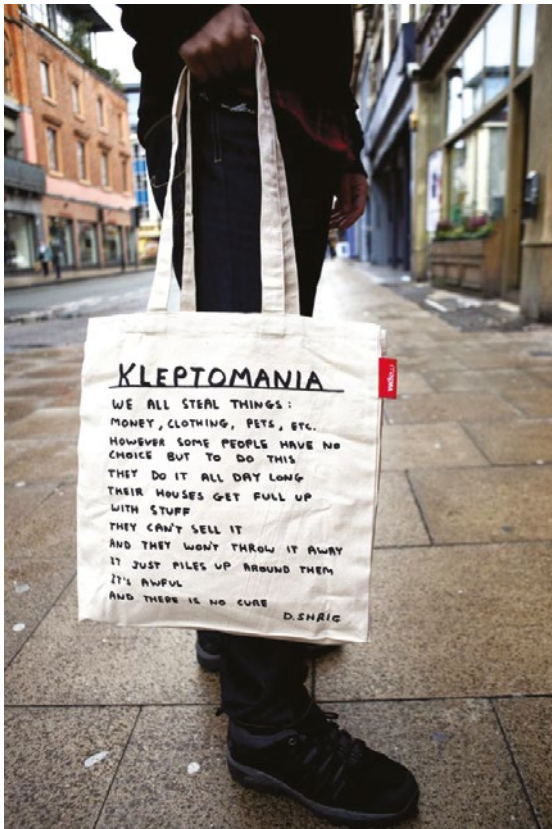 KLEPTOMANIA
WE ALL STEAL THINGS:
MONEY, CLOTHING, PETS, ETC.
HOWEVER SOME PEOPLE HAVE NO
CHOICE BUT TO DO THIS
THEY DO IT ALL DAY LONG
THEIR HOUSES GET FULL UP
WITH STUFF
THEY CAN'T SELL IT
AND THEY WON'T THROW IT AWAY
IT JUST PILES UP AROUND THEM
IT'S AWFUL
AND THERE IS NO CURE
D. SHRIG